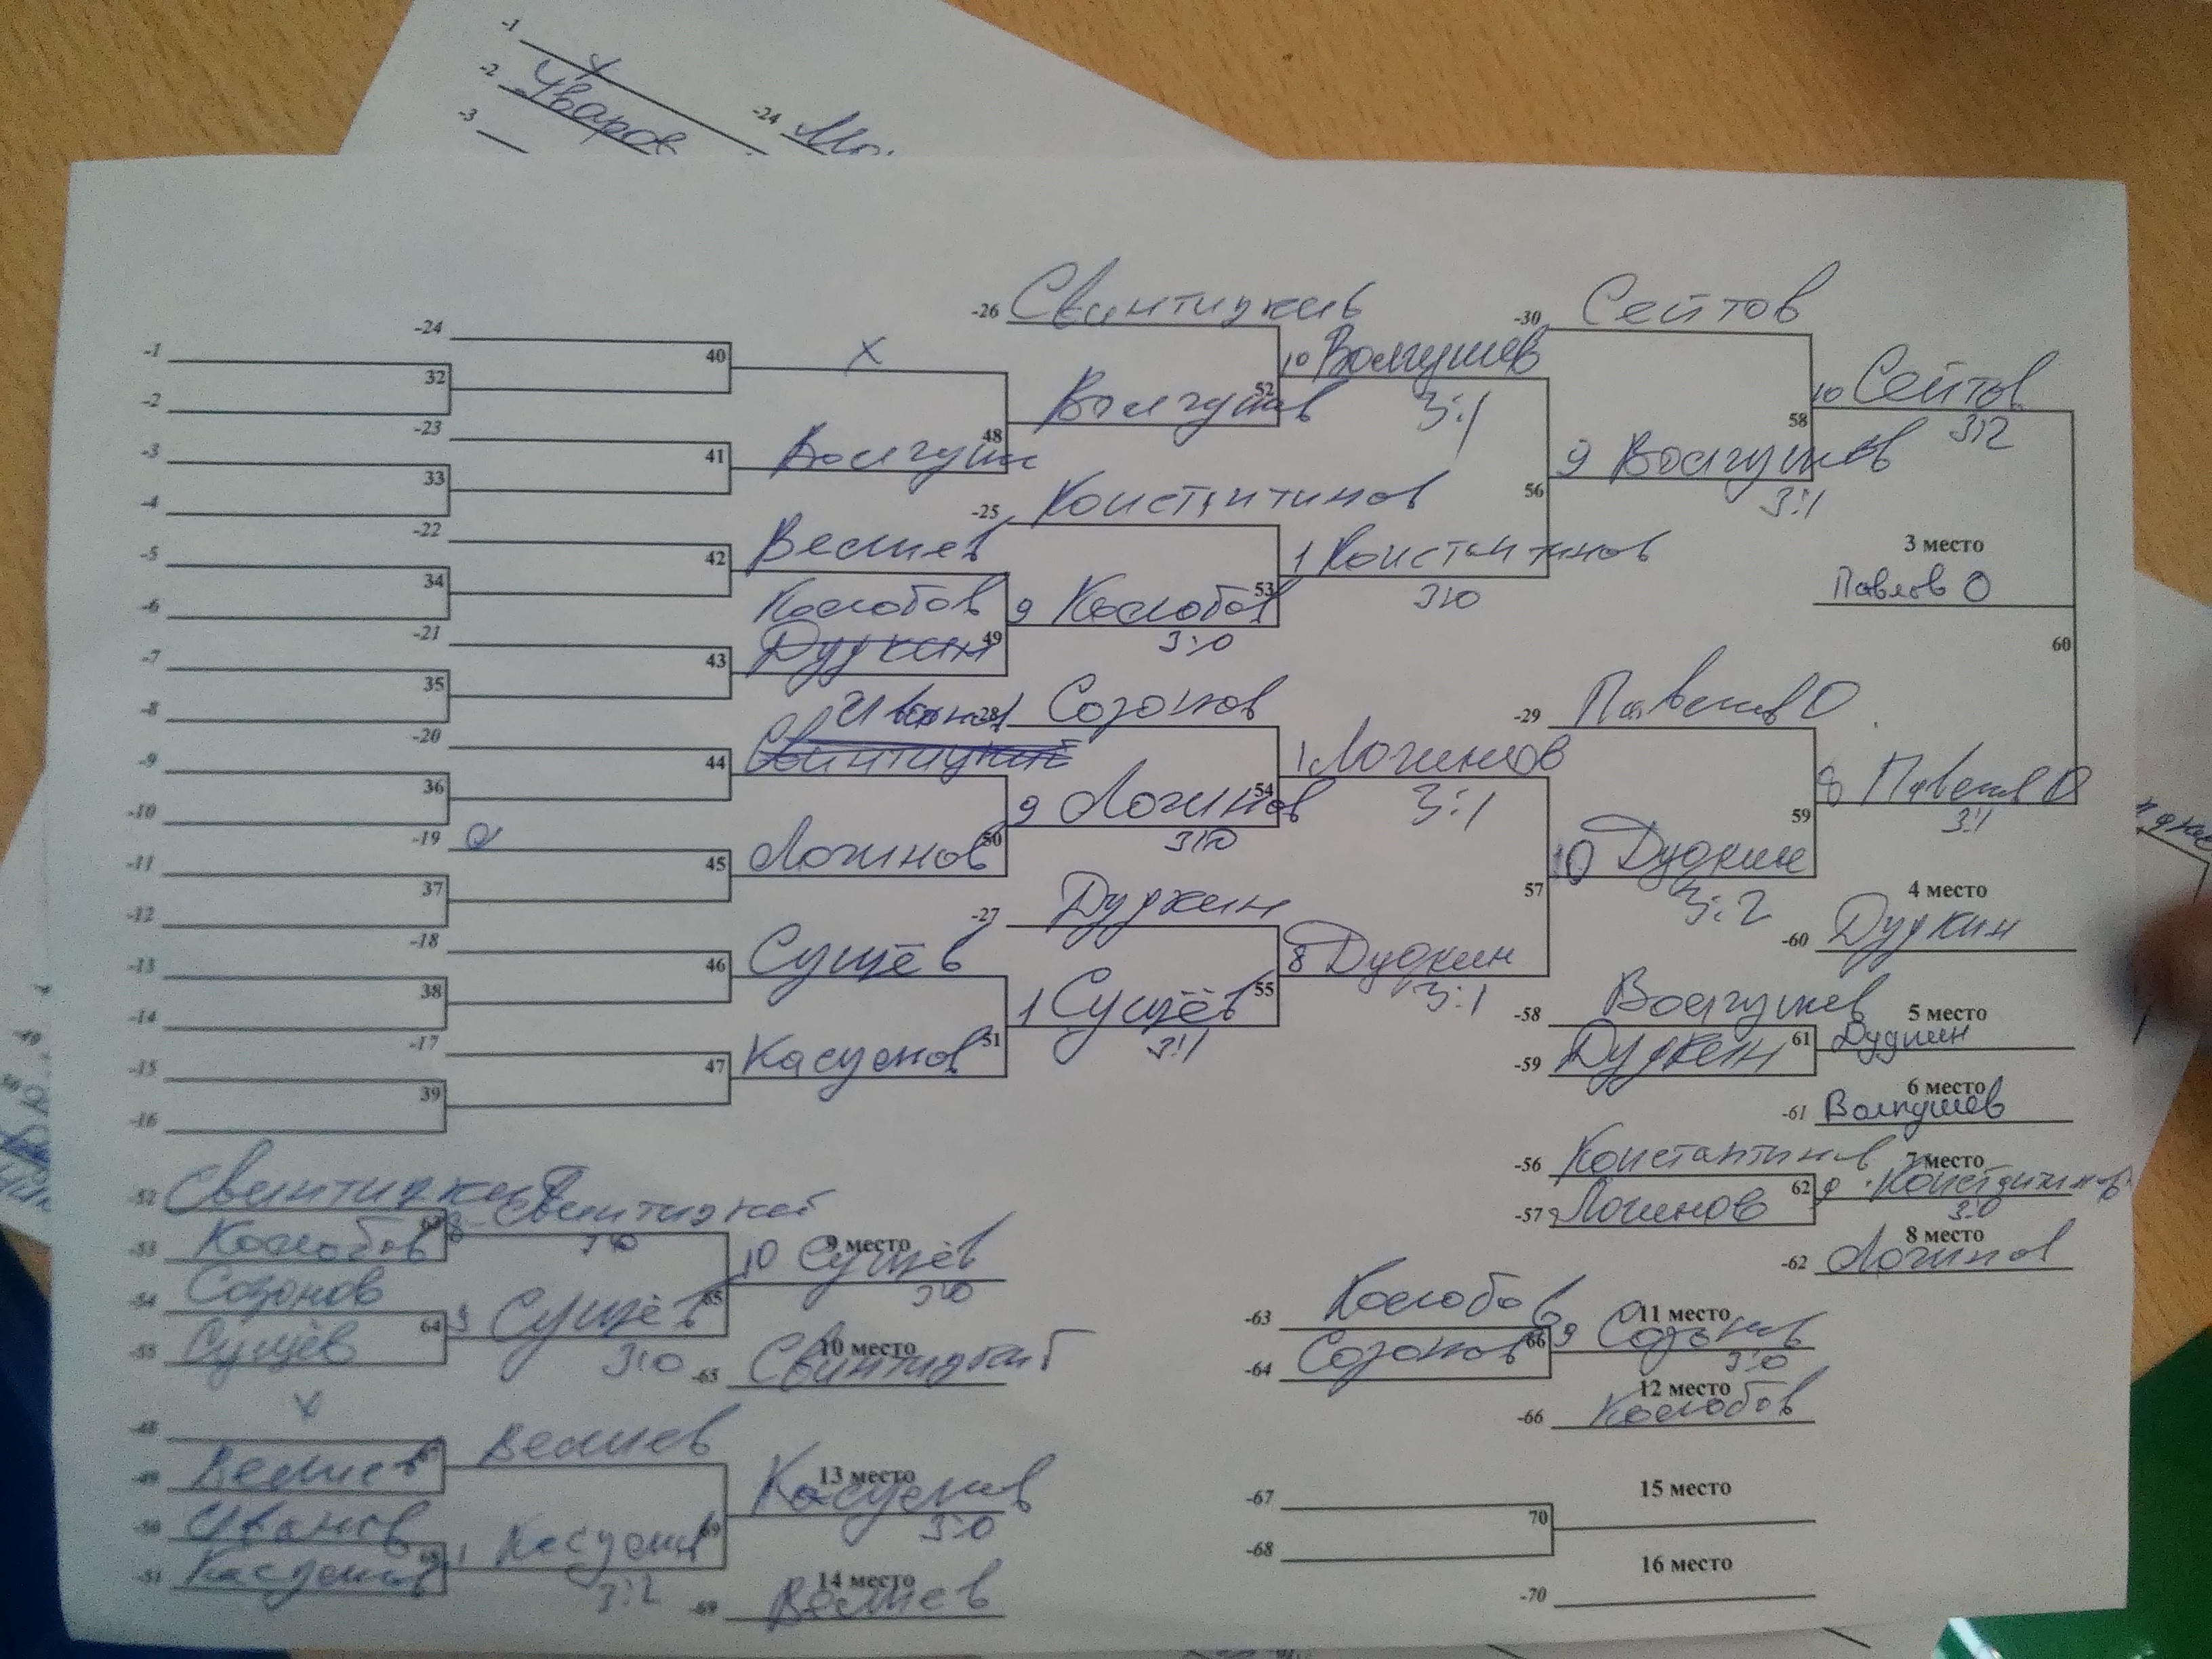 -1
-2 Уваров
-3
-24
-26 Свинтицкий
-30 Сеитов
-24
-1
40 X
32
10 Волгушев
52
3:1
10 Сеитов
58
3:2
-2
-23
48 Волгушев
-3
41 Волгуш
9 Волгушев
3:1
33
-4
-25 Константинов
56
-22
-5
42 Велиев
1 Константинов
53
3:0
3 место
Павлов О
34
-6
Кослобов
9 Кослобов
3:0
-21
Дудкин
49
60
-7
43
35
-8
Иванов
-28 Созонов
-29 Павлов О
-20
Свинтицкий
44
-9
1 Логинов
54
3:1
36
-10
9 Логинов
50
3:0
8 Павлов О
59
3:1
-19
-11
45 Логинов
10 Дудкин
57
3:2
37
-12
-27 Дудкин
4 место
-60 Дудкин
-18
-13
46 Сущёв
8 Дудкин
55
3:1
38
-14
1 Сущёв
51
3:1
-58 Волгушев
5 место
61 Дудкин
-17
-59 Дудкин
-15
47 Касуенов
6 место
-61 Волгушев
39
-16
-56 Константинов
7 место
62 9 Константинов
3:0
-57 Логинов
-52 Свинтицкий
8 Свинтицкий
3:0
-53 Кослобов
8 место
-62 Логинов
9 место
10 Сущёв
65
3:0
-54 Созонов
64 9 Сущёв
3:0
-55 Сущёв
10 место
-65 Свинтицкий
-63 Кослобов
11 место
66 9 Созонов
3:0
-64 Созонов
12 место
-66 Кослобов
X
-48
Велиев
-49 Велиев
13 место
Касуенов
69
3:0
-50 Иванов
1 Касуенов
3:2
-51 Касуенов
14 место
-69 Велиев
-67
15 место
70
-68
16 место
-70